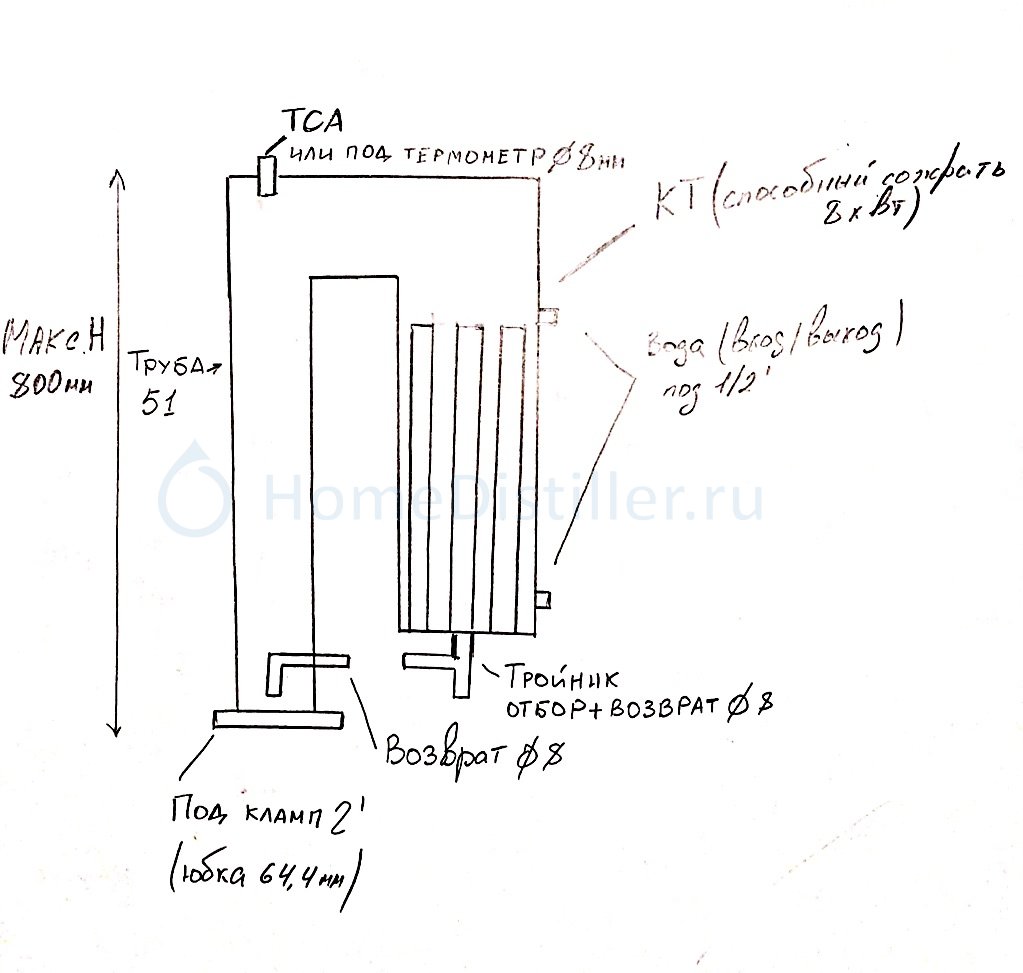 ТСА
ИЛИ ПОД ТЕРМОМЕТР Ø8мм
КТ (способный сожрать
8 кВт)
МАКС.Н
800мм
ТРУБА
51
вода (вход/выход)
под 1/2'
HomeDistiller.ru
ТРОЙНИК
ОТБОР+ВОЗВРАТ Ø8
Возврат Ø8
Под кламп 2'
(юбка 64,4мм)